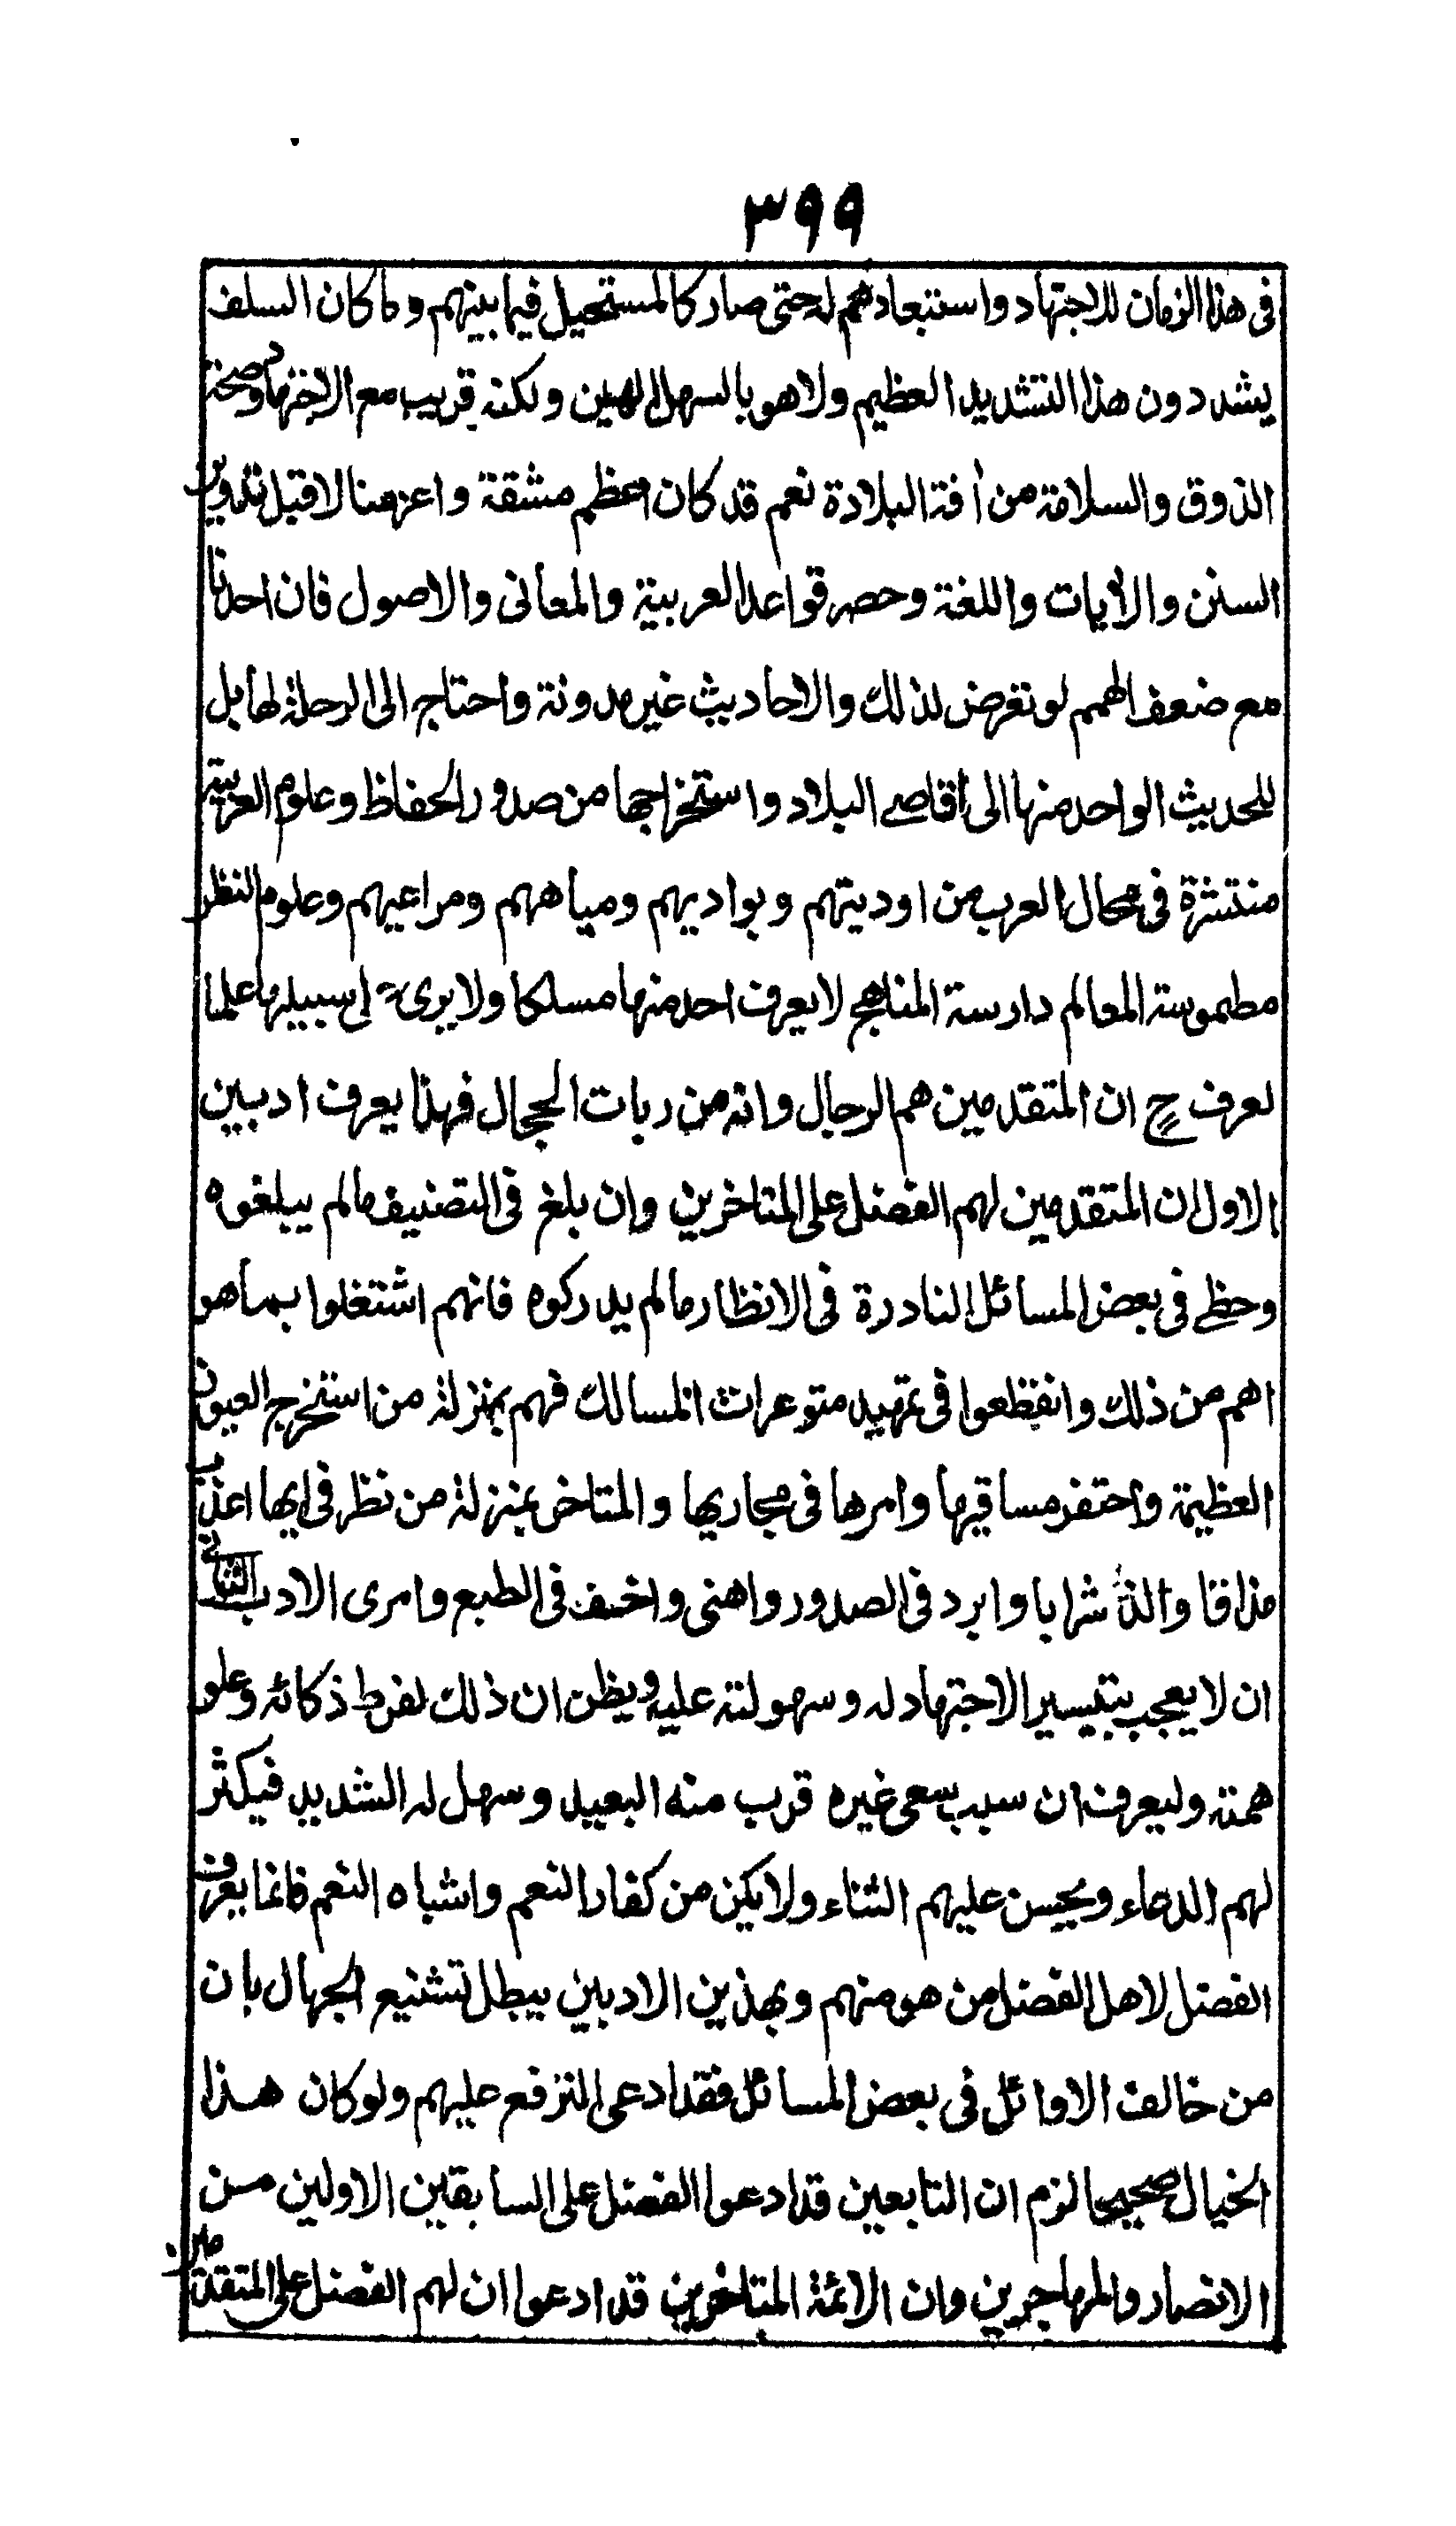 ٣٩٩
فى هذا الزمان للاجتهاد واستبعادهم له حتى صار كالمستحيل فيما بينهم وما كان السلف
يشددون هذا التشديد العظيم ولا هو بالسهل الهين ولكنه قريب مع الاجتهاد وصحة
الذوق والسلامة من أفة البلادة نعم قد كان اعظم مشقة واعز منالا قبل تدوين
السنن والأيات واللغة وحصر قواعد العربية والمعانى والاصول فان احدنا
مع ضعف الهمم لو تعرض لذلك والاحاديث غير مدونة واحتاج الى الرحلة لها بل
للحديث الواحد منها الى أقاصے البلاد واستخراجها من صدور الحفاظ وعلوم العربية
منتشرة فى محال العرب من اوديتهم وبواديهم ومياههم ومراعيهم وعلوم النظر
مطموسة المعالم دارسة المناهج لا يعرف احد منها مسلكا ولا يرى الى سبيلها علما
لعرف ح ان المتقدمين هم الرجال وانه من ربات الحجال فهذا يعرف ادبين
الاول ان المتقدمين لهم الفضل على المتاخرين وان بلغ فى التصنيف مالم يبلغوه
وحظے فى بعض المسائل النادرة فى الانظار مالم يدركوه فانهم اشتغلوا بما هو
اهم من ذلك وانقطعوا فى تمهيد متوعرات المسالك فهم بمنزلة من استخرج العيون
العظيمة واحتفر مساقيها وامرها فى مجاريها والمتاخر بمنزلة من نظر فى ايها اعذب
مذاقا والذ شرابا وابرد فى الصدور واهنى واخف فى الطبع وامرى الادب الثانى
ان لا يعجب بتيسير الاجتهاد له وسهولته عليه ويظن ان ذلك لفرط ذكائه وعلو
همته وليعرف ان سبب سعى غيره قرب منه البعيد وسهل له الشديد فيكثر
لهم الدعاء ويحسن عليهم الثناء ولا يكن من كفار النعم واشباه النعم فانما يعرف
الفضل لاهل الفضل من هو منهم وبهذين الادبين يبطل تشنيع الجهال بان
من خالف الاوائل فى بعض المسائل فقد ادعى الترفع عليهم ولو كان هذا
الخيال صحيحا لزم ان التابعين قد ادعوا الفضل على السابقين الاولين من
الانصار والمهاجرين وان الائمة المتاخرين قد ادعوا ان لهم الفضل على المتقدمين